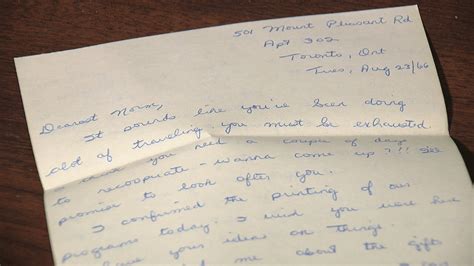 501 Mount Pleasant Rd
Apt 302
Toronto, Ont
Tues, Aug 23/66
Dearest Norm,
It sounds like you've been doing
alot of traveling, you must be exhausted.
I think you need a couple of days
to recooperate - wanna come up?!! I'll
promise to look after you.
I confirmed the printing of our
programs today. I wish you were here
have your ideas on things.
me about the gifts